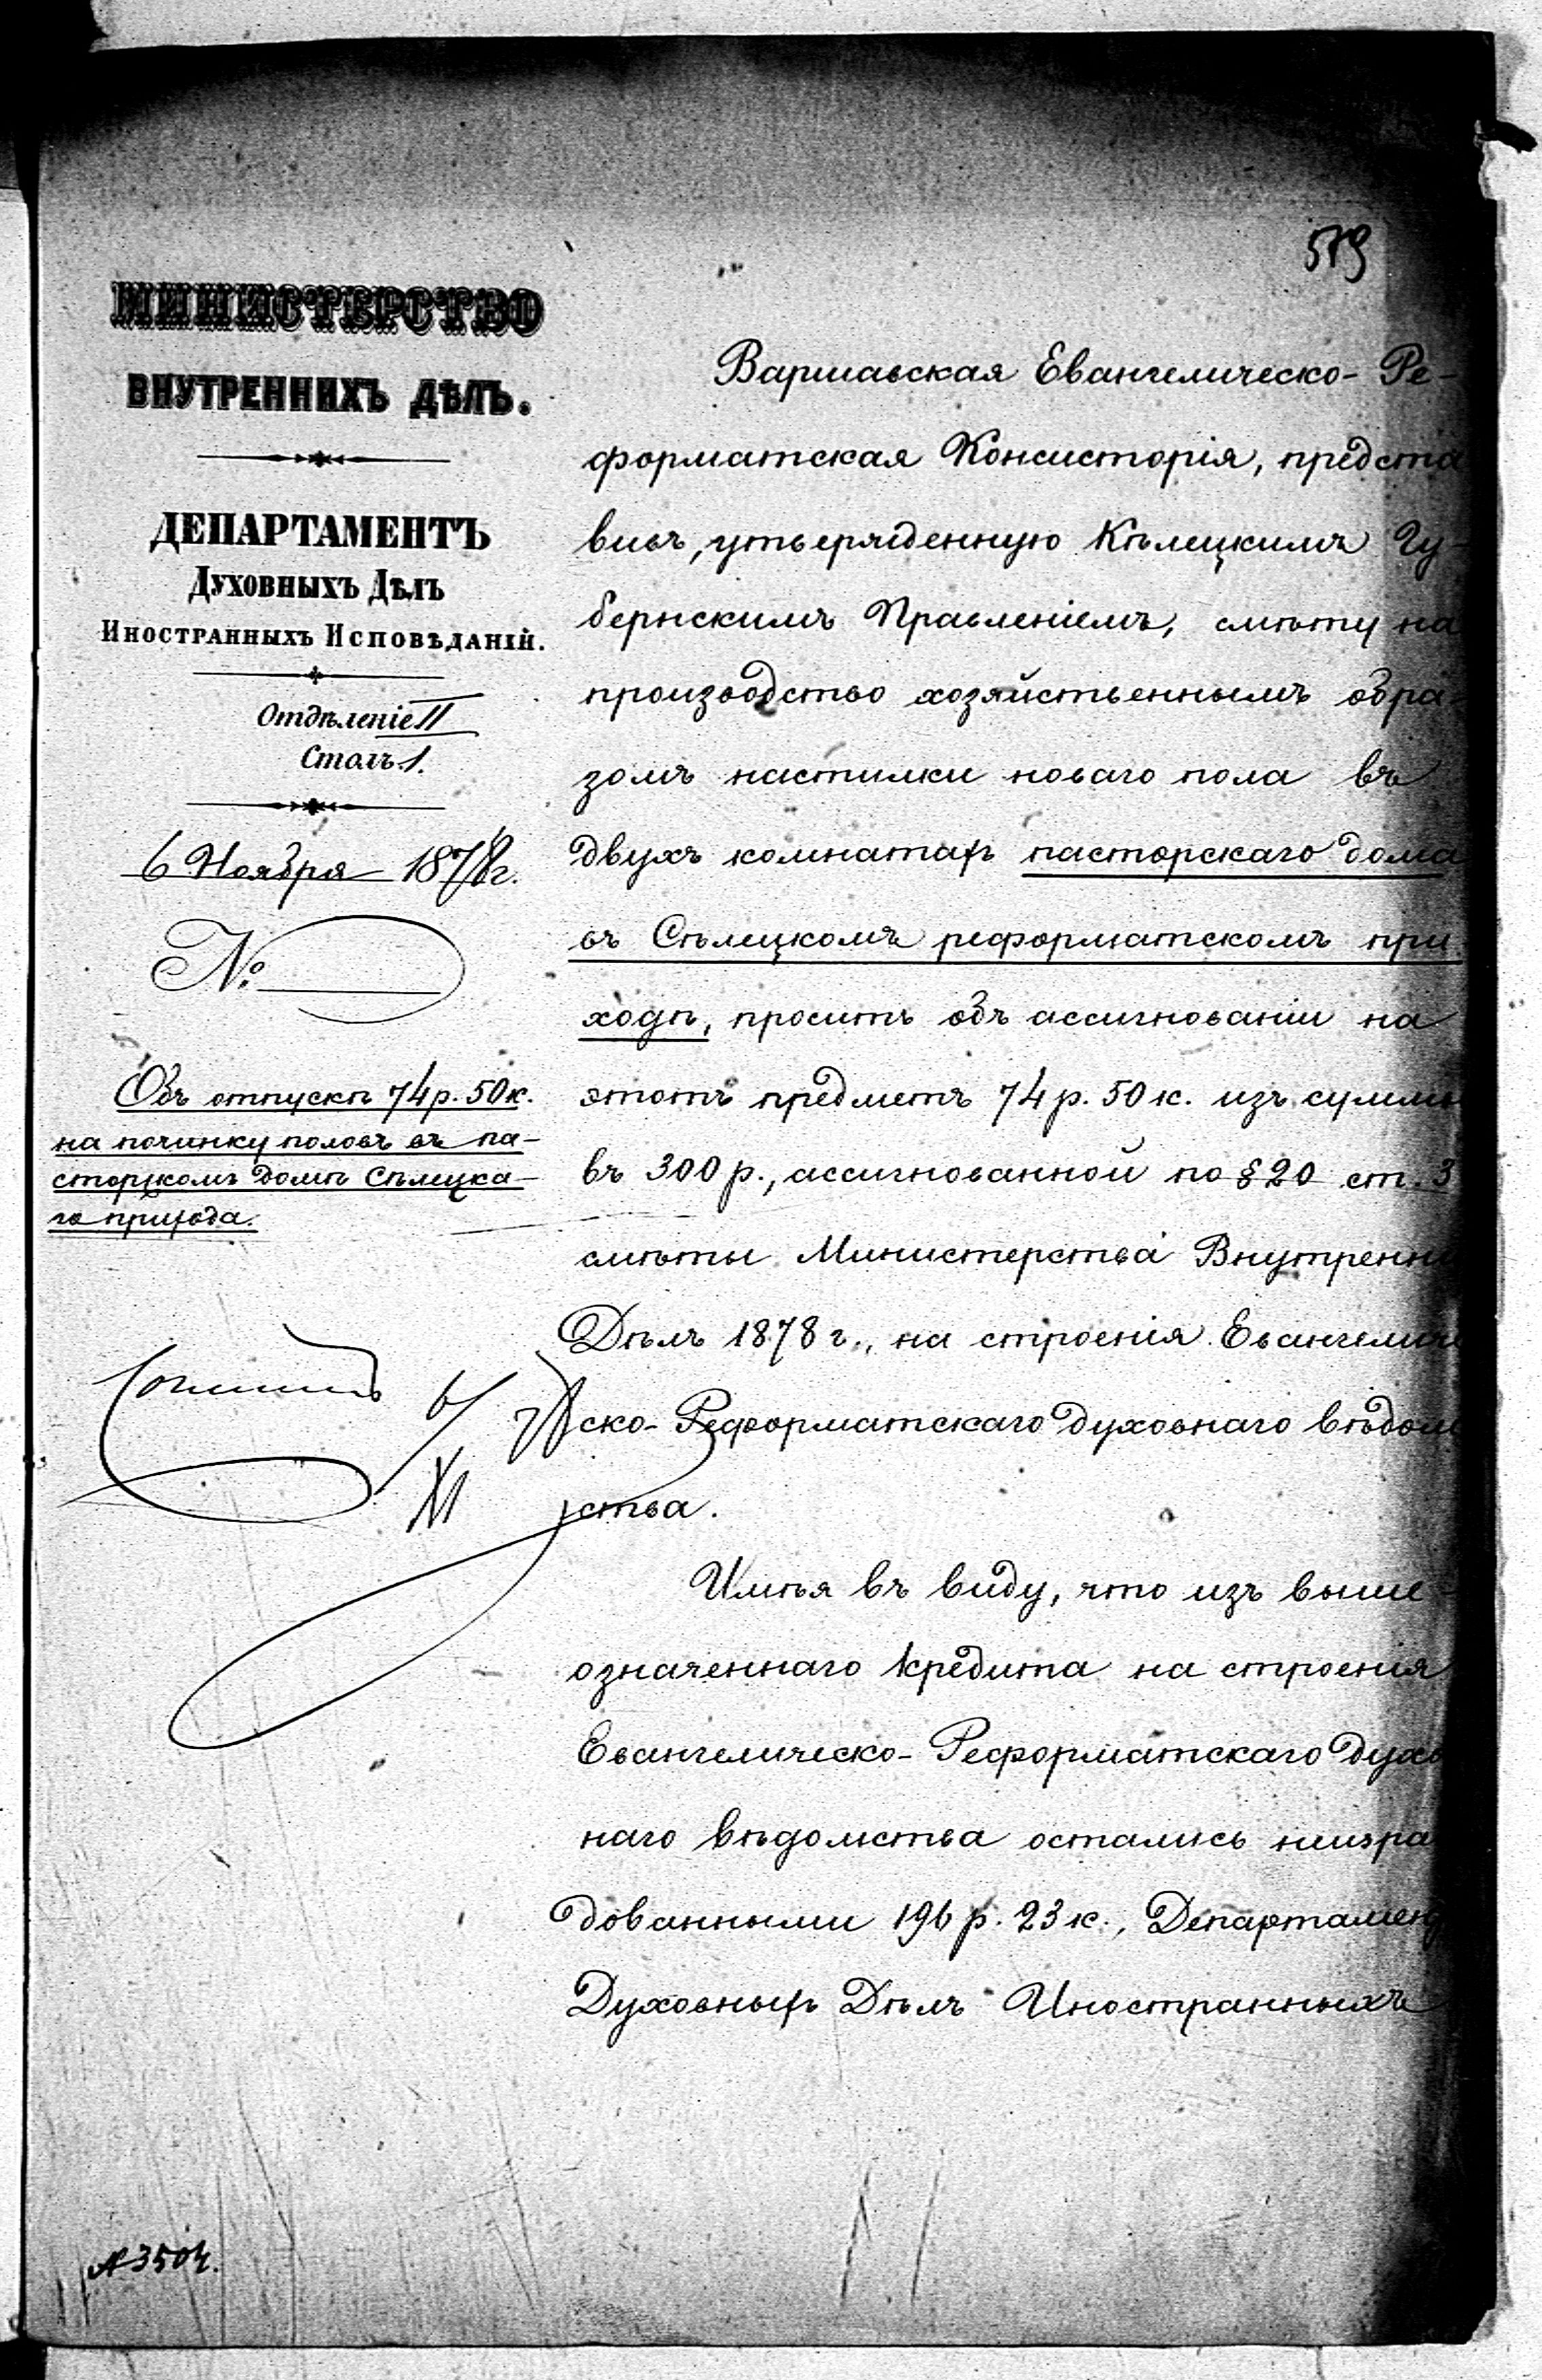 579
МИНИСТЕРСТВО
ВНУТРЕННИХЪ ДѢЛЪ.
ДЕПАРТАМЕНТЪ
ДУХОВНЫХЪ ДѢЛЪ
ИНОСТРАННЫХЪ ИСПОВѢДАНІЙ.
Отдѣленіе II
Столъ 1.
6 Ноября 1878 г.
№
Объ отпускѣ 74 р. 50 к.
на починку половъ въ па-
сторскомъ домѣ Сѣлецка-
го прихода.
6/XI
Варшавская Евангелическо-Ре-
форматская Консисторія, предста
вивъ, утвержденную Кѣлецкимъ Гу-
бернскимъ Правленіемъ, смѣту на
производство хозяйственнымъ обра-
зомъ настилки новаго пола въ
двухъ комнатахъ пасторскаго дома
въ Сѣлецкомъ реформатскомъ при-
ходѣ, проситъ объ ассигнованіи на
этотъ предметъ 74 р. 50 к. изъ суммы
въ 300 р., ассигнованной по § 20 ст. 3
смѣты Министерства Внутренни
Дѣлъ 1878 г., на строенія Евангеличе
ско-Реформатскаго духовнаго вѣдом
ства.
Имѣя въ виду, что изъ выше-
означеннаго кредита на строенія
Евангелическо-Реформатскаго духо
наго вѣдомства остались неизра
дованными 196 р. 23 к., Департамен
Духовныхъ Дѣлъ Иностранныхъ
№ 3504.